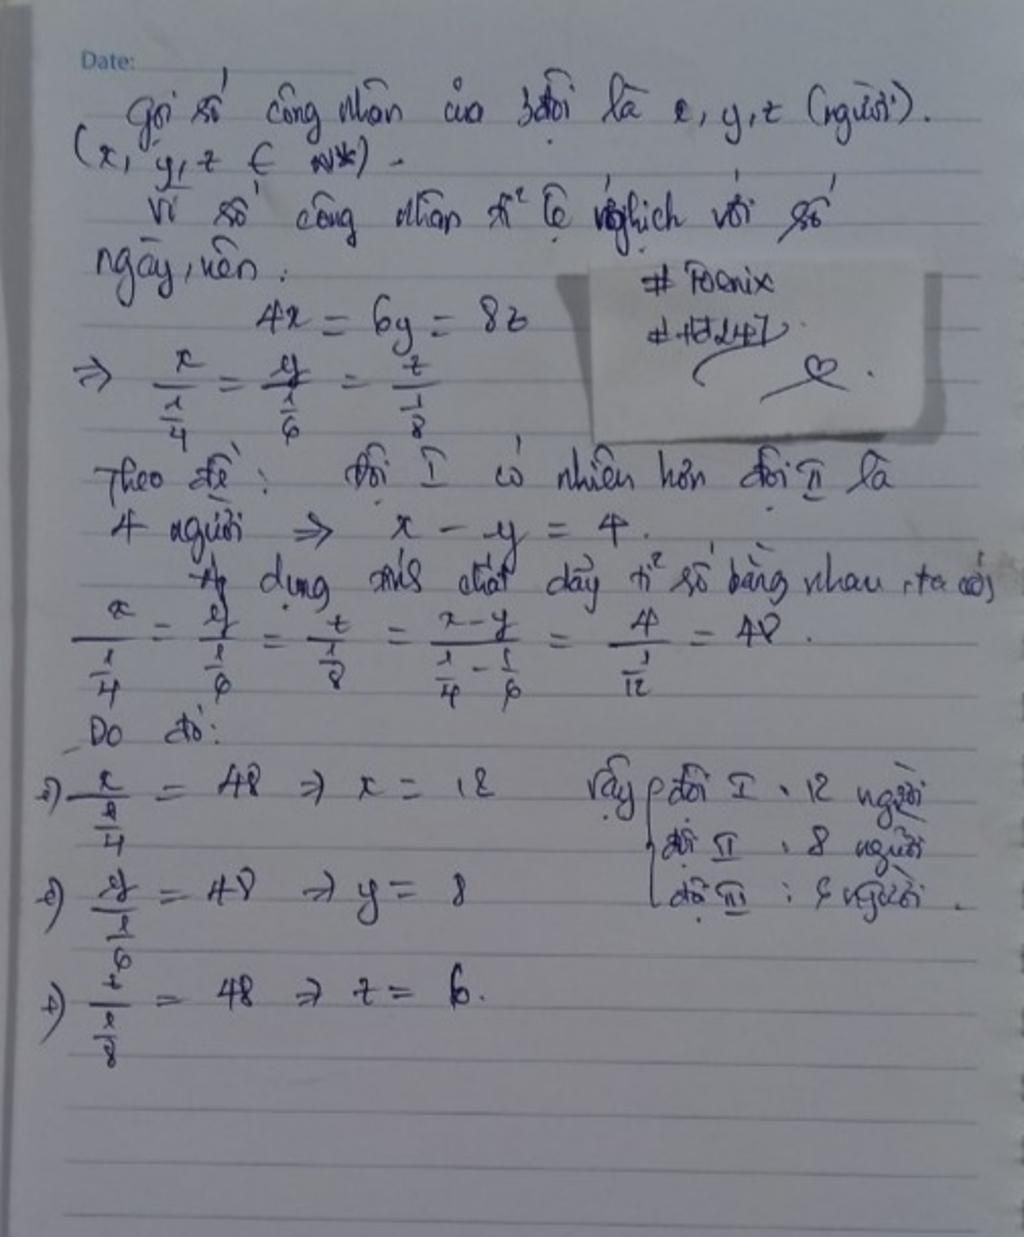 Date:
Gọi số công nhân của 3 đội là x, y, z (người).
(x, y, z ∈ N*).
Vì số công nhân tỉ lệ nghịch với số
ngày, nên:
# Foenix
4x = 6y = 8z
⇒ x/(1/4) = y/(1/6) = z/(1/8)
Theo đề: Đội I có nhiều hơn đội II là
4 người ⇒ x - y = 4.
Áp dụng t/c chất dãy tỉ số bằng nhau, ta có:
x/(1/4) = y/(1/6) = z/(1/8) = (x-y)/(1/4 - 1/6) = 4/(1/12) = 48.
Do đó:
+) x/(1/4) = 48 ⇒ x = 12
+) y/(1/6) = 48 ⇒ y = 8
+) z/(1/8) = 48 ⇒ z = 6.
Vậy đội I : 12 người
đội II : 8 người
đội III : 6 người.